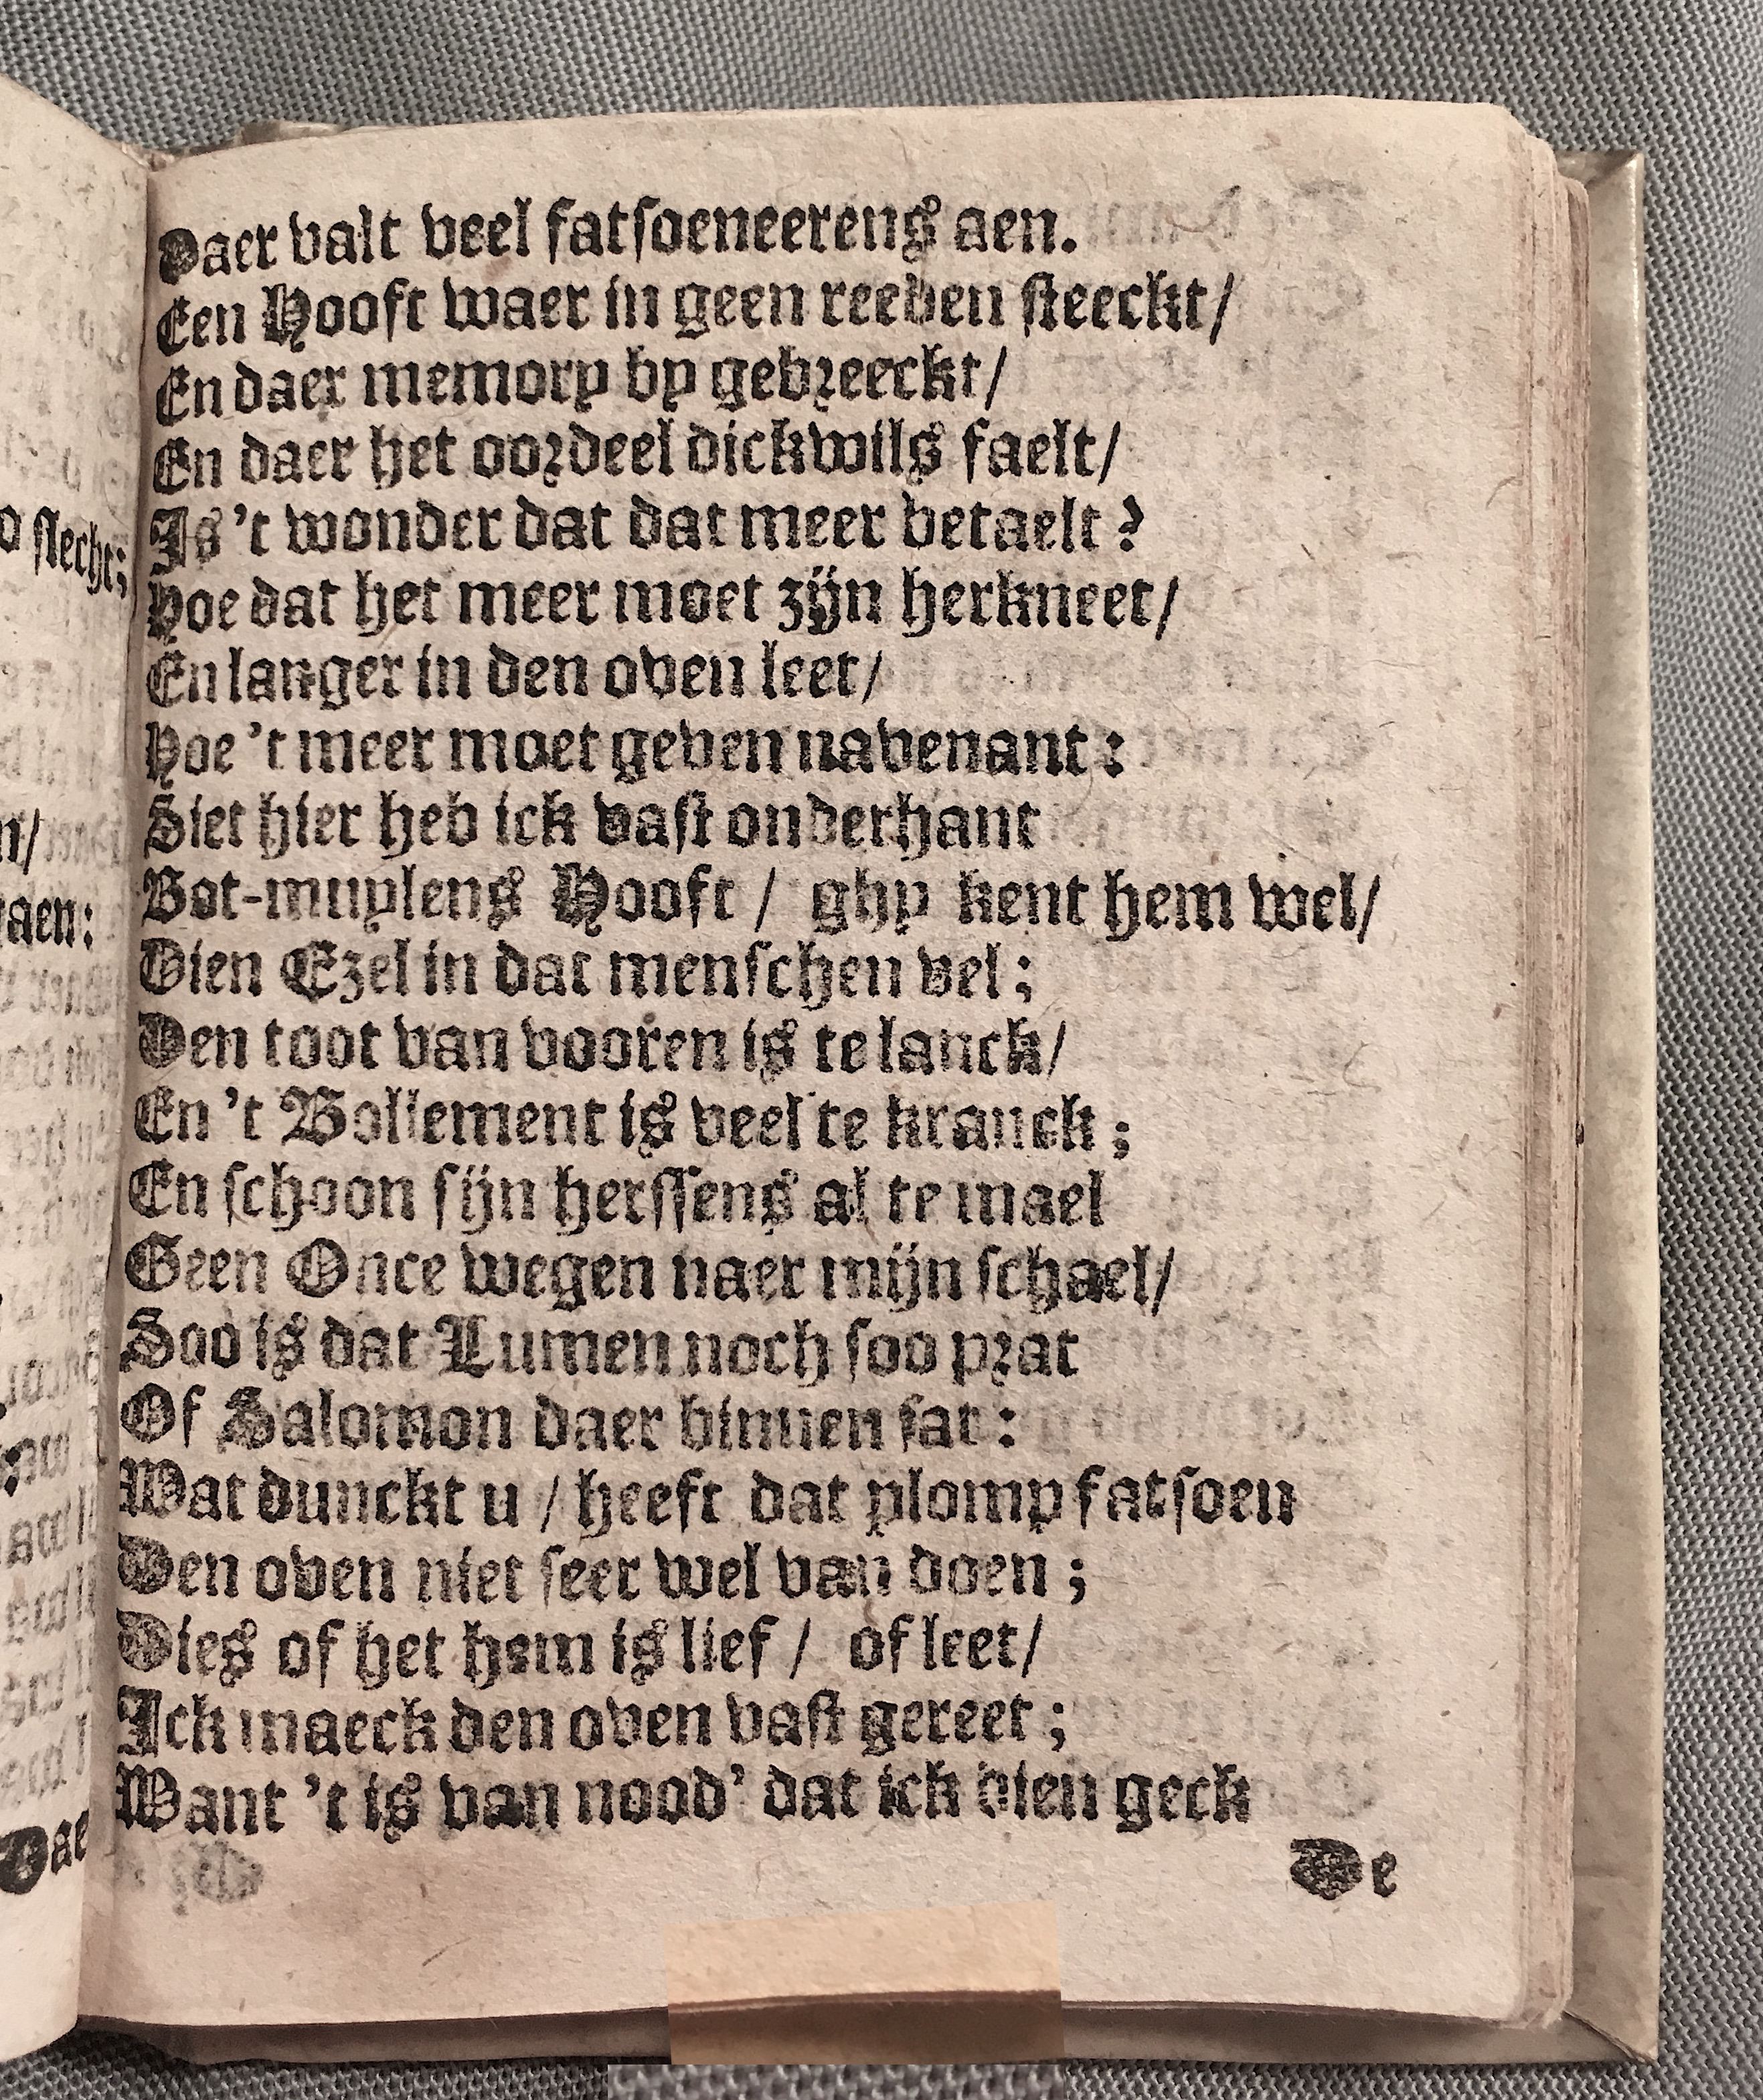 Daer valt veel fatsoeneerens aen.
Een Hooft waer in geen reeden steeckt/
En daer memory by gebreeckt/
En daer het oordeel dickwils faelt/
Is 't wonder dat dat meer betaelt?
Hoe dat het meer moet zijn herkneet/
En langer in den oven leet/
Hoe 't meer moet geven navenant:
Siet hier heb ick vast onderhant
Bot-muylens Hooft / ghy kent hem wel/
Dien Ezel in dat menschen vel;
Den toot van vooren is te lanck/
En 't Bollement is veel te kranck;
En schoon sijn herssens al te mael
Geen Once wegen naer mijn schael/
Soo is dat Lumen noch soo prat
Of Salomon daer binnen sat:
Wat dunckt u / heeft dat plomp fatsoen
Den oven niet seer wel van doen;
Dies of het hem is lief / of leet/
Ick maeck den oven vast gereet;
Want 't is van nood' dat ick dien geck
De
slecht;
n/
aen:
Dae